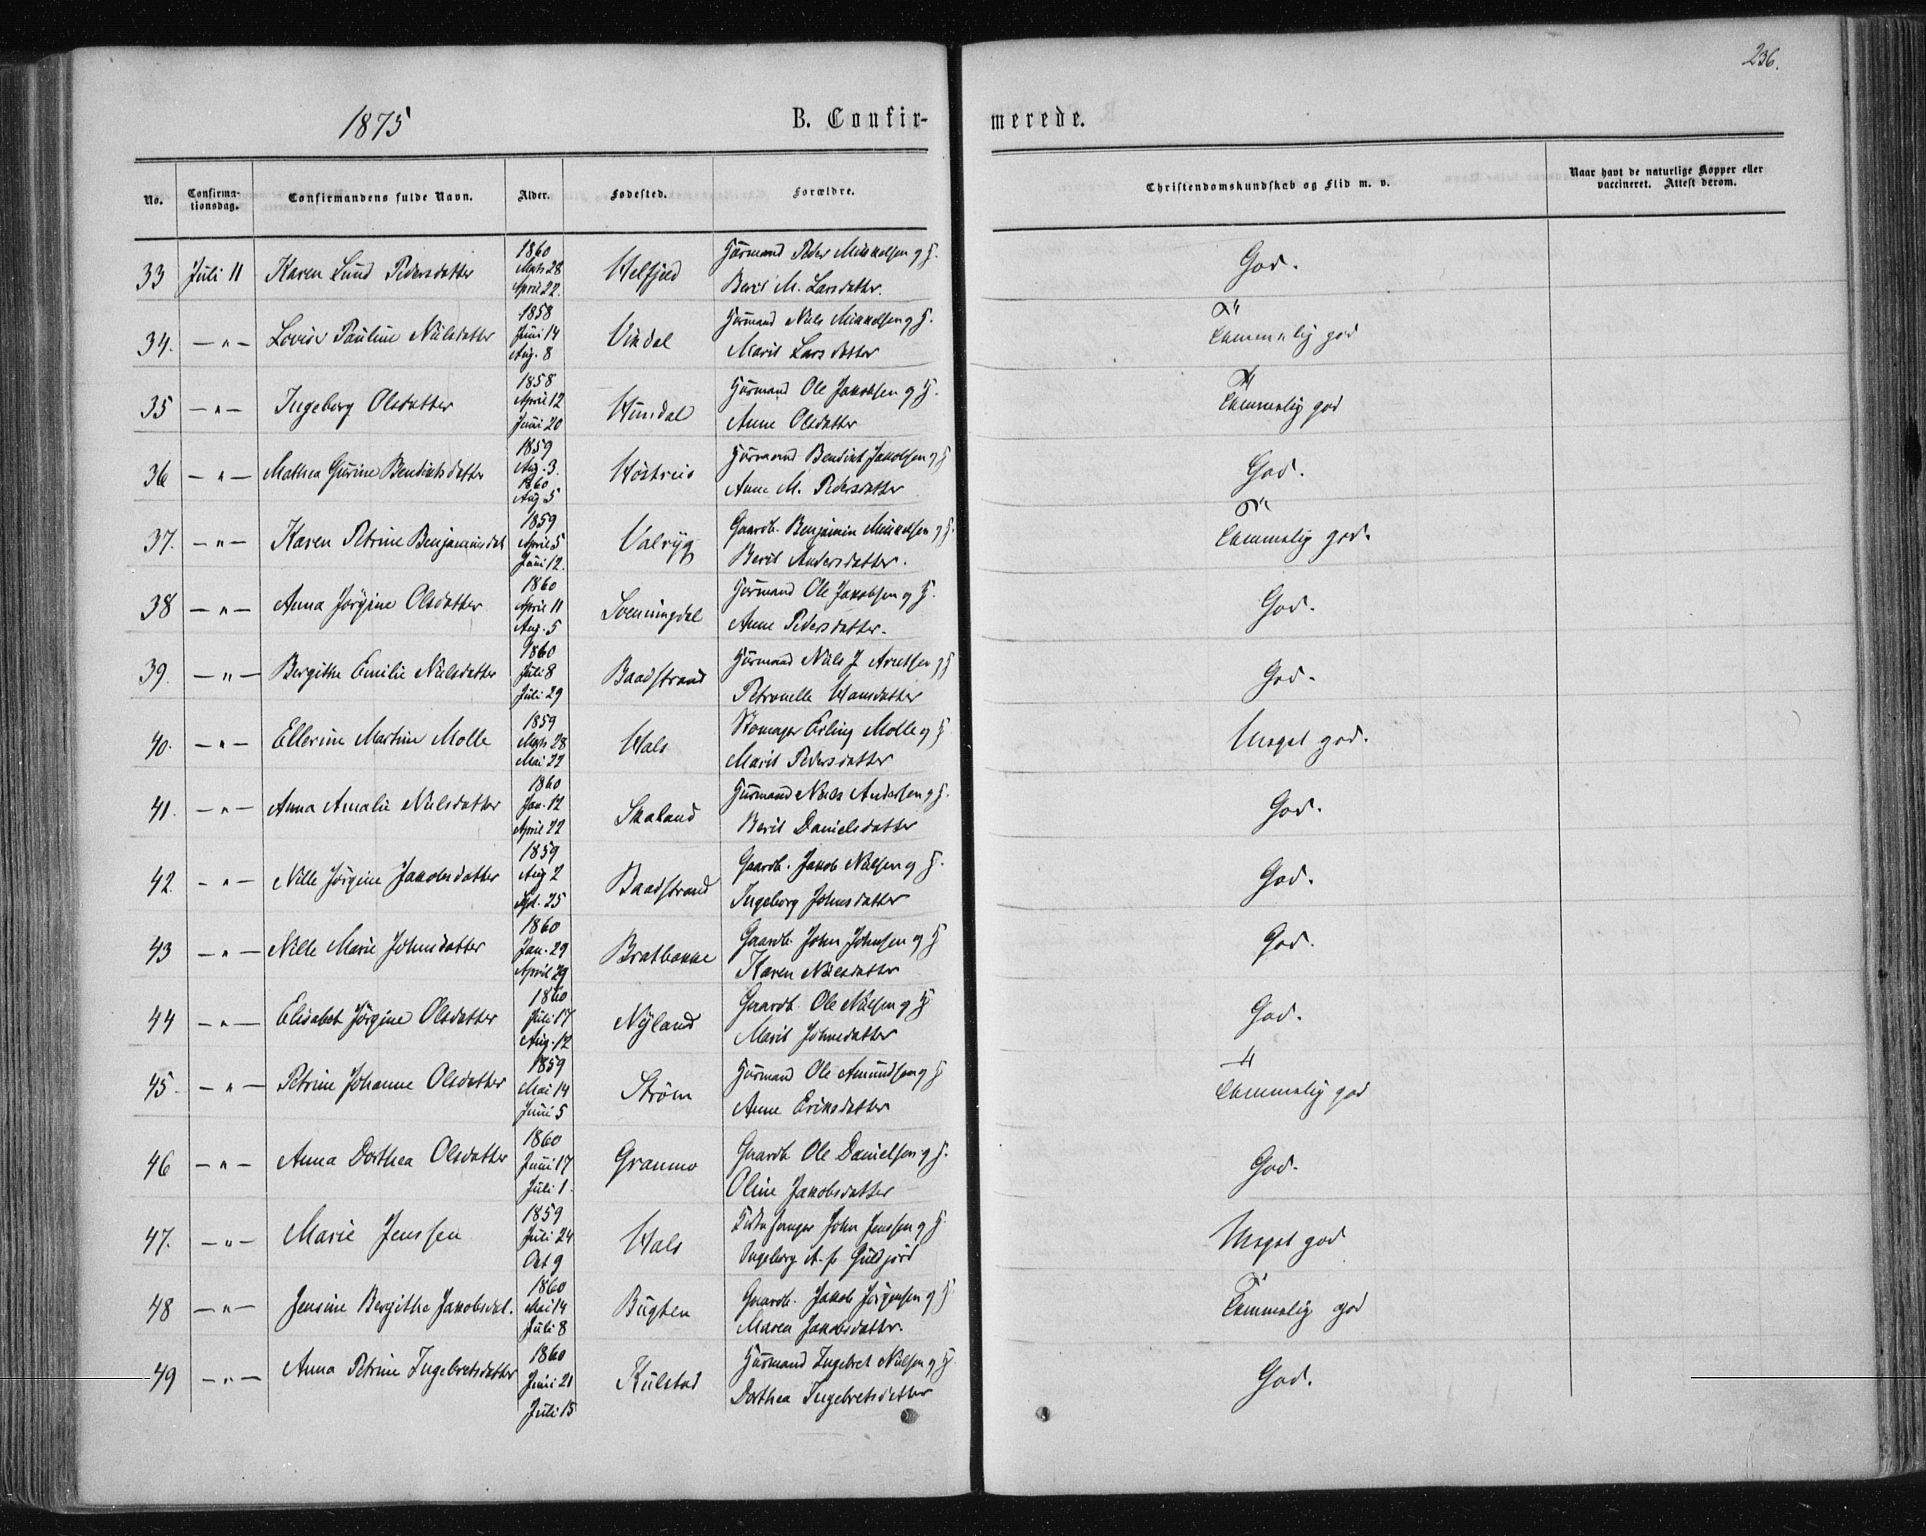 236.
1875
B. Confir-
merede.
No.
Confirma-
tionsdag.
Confirmandens fulde Navn.
Alder.
Fødested.
Forældre.
Christendomskundskab og Flid m. v.
Naar havt de naturlige Kopper eller
vaccineret. Attest derom.
1860
33 Juli 11 Karen Lund Pedersdatter Mrts 28 Helfjeld Huusmand Peder Mikkelsen og H. God.
April 22. Berit M. Larsdatter.
1858
34. — " — Lovise Pauline Nielsdatter Juni 14 Vindal Huusmand Niels Mikkelsen og H. Temmelig god
Aug. 8 Marit Larsdatter
1858
35 — " — Ingeborg Olsdatter April 12 Hundal Huusmand Ole Jakobsen og H. Temmelig god
Juni 20 Anne Olsdatter
1859
36 — " — Mathea Gurine Bendiksdatter Aug. 3. Huusmand Bendikt Jakobsen og H God.
1860
Aug 5 Anne M. Pedersdatter
1859
37. — " — Karen Petrine Benjaminsdat April 5 Valryg Gaardb. Benjamin Mikkelsen og H. Temmelig god.
Juni 12. Berit Andersdatter.
1860
38 — " — Anna Jørgine Olsdatter April 11 Svenningdal Huusmand Ole Jakobsen og H. God.
Aug. 5 Anne Pedersdatter.
1860
39. — " — Bergithe Emilie Nielsdatter Juli 8 Baadstrand Huusmand Niels J Arntsen og H God.
Juli 29 Petronelle Hansdatter
1859
40. — " — Ellerine Martine Molle Mrts 28 Hals Skomager Erling Molle og H Meget god.
Mai 22 Marit Pedersdatter
1860
41. — " — Anna Amalie Nielsdatter Jan. 12 Skaland Huusmand Niels Andersen og H. God.
April 22 Berit Danielsdatter
1859
42. — " — Nille Jørgine Jakobsdatter Aug 2 Baadstrand Gaardb. Jakob Nielsen og H. God.
Spt. 25 Ingeborg Johnsdatter
1860
43 — " — Nille Marie Johnsdatter Jan. 29 Bratbakke Gaardb. John Johnsen og H God.
April 29 Karen Nielsdatter
1860
44 — " — Elisabet Jørgine Olsdatter Juli 17 Nyland Gaardb. Ole Nielsen og H God.
Aug. 12 Marit Johnsdatter
1859
45. — " — Petrine Johanne Olsdatter Mai 14 Strøm Huusmand Ole Amundsen og H Temmelig god
Juni 5 Anne Eriksdatter
1860
46 — " — Anna Dorthea Olsdatter Juni 17 Granmo Gaardb. Ole Danielsen og H. God.
Juli 1. Oline Jakobsdatter
1859
47. — " — Marie Jenssen Juli 24 Hals John Jenssen og H Meget god
Oct 9 Ingeborg A. f. Guldjord
1860
48 — " — Jensine Bergitha Jakobsdat. Mai 14 Bugten Gaardb. Jakob Jørgensen og H Temmelig god
Juli 8 Maren Jakobsdatter.
1860
49 — " — Anna Petrine Ingebretsdatter Juni 21 Kulstad Huusmand Ingebret Nielsen og H. God.
Juli 15 Dorthea Ingebretsdatter